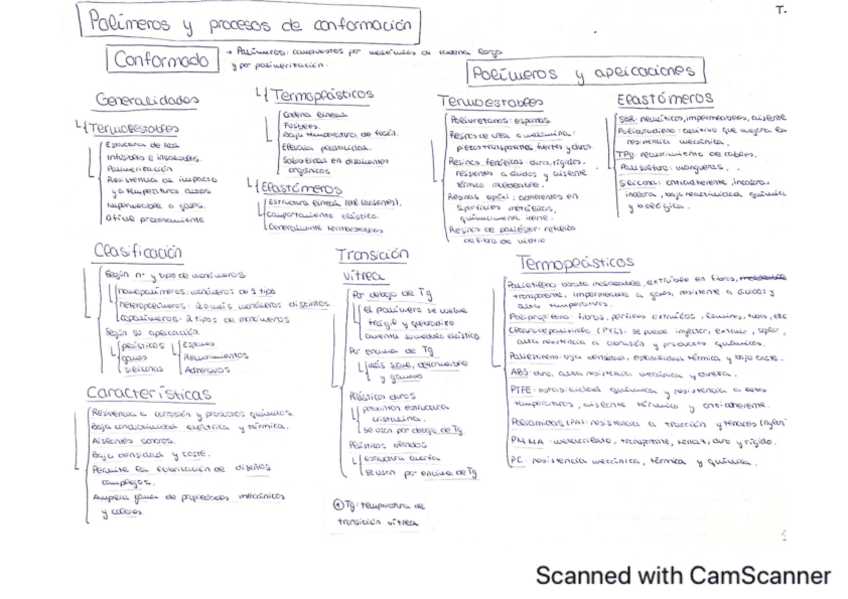 Polímeros y procesos de conformación
T.
Conformado
→ Polímeros: compuestos por moléculas de cadena larga
y por polimerización.
Generalidades
Termoestables
Estructura de red
Infusibles e insolubles.
Polimerización
Resistencia a impacto
y a temperaturas altas.
Impermeable a gases.
Difícil procesamiento
Termoplásticos
Cadena lineal
Fusibles.
Baja temperatura de fusión.
Elevada plasticidad.
Solubilidad en disolventes
orgánicos
Elastómeros
Estructura lineal
Comportamiento elástico.
Generalmente termoestables
Clasificación
Según nº y tipo de monómeros
homopolímeros: monómeros de 1 tipo
heteropolímeros: 2 o más monómeros distintos
copolímeros: 2 tipos de monómeros
Según su aplicación
plásticos
gomas
siliconas
Espumas
Recubrimientos
Adhesivos
Características
Resistencia a corrosión y productos químicos.
Baja conductividad eléctrica y térmica.
Aislantes sonoros.
Baja densidad y coste.
Permite la fabricación de diseños
complejos.
Amplia gama de propiedades mecánicas
y colores
Transción
vítrea
Por debajo de Tg
el polímero se vuelve
frágil y quebradizo
aumenta su módulo elástico
Por encima de Tg
más suave, deformable
y gomoso
Plásticos duros
presentan estructura
cristalina.
se usan por debajo de Tg
Plásticos blandos
estructura amorfa
se usan por encima de Tg
Tg: temperatura de
transición vítrea
Polímeros y aplicaciones
Termoestables
Poliuretanos: espumas
Resinas de urea o melamina:
piezas transparentes fuertes y duras
Resinas fenólicas: duro, rígidos,
resistentes a ácidos y aislante
térmico moldeable.
Resinas epoxi: adherentes en
superficies metálicas,
químicamente inerte.
Resinas de poliéster: refuerzo
de fibra de vidrio
Elastómeros
SBR: neumáticos, impermeables, aislante
Polibutadieno: aditivo que mejora la
resistencia mecánica.
TPU: recubrimiento de cables.
Polisulfuro: mangueras.
Silicona: antiadherente, incolora,
inodora, baja reactividad química
y biológica.
Termoplásticos
Polietileno moldeable, extruible en fibras,
transparente, impermeable a gases, resistente a ácidos y
altas temperaturas.
Polipropileno: fibras, perfiles extruidos, láminas, tubos, etc
(PVC): se puede inyectar, extruir, soplar,
alta resistencia a abrasión y productos químicos.
Poliestireno: baja densidad, estabilidad térmica y bajo coste.
ABS: duro, alta resistencia mecánica y dureza.
PTFE: estabilidad química y resistencia a altas
temperaturas, aislante térmico y antiadherente.
Poliamidas (PA): resistencia a tracción y tenaces
PMMA: metacrilato, transparente, tenaz, duro y rígido.
PC: resistencia mecánica, térmica y química.
Scanned with CamScanner